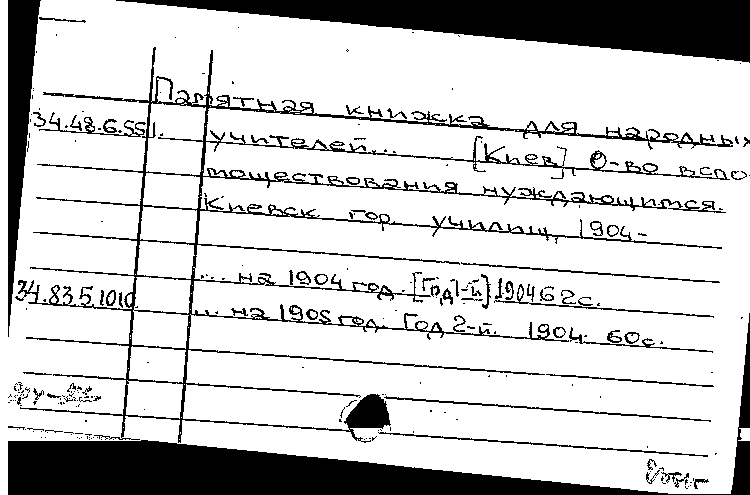 Памятная книжка для народных
34.48.6.551. учителей... [Киев], О-во вспо-
моществования нуждающимся.
Киевск. гор. училищ, 1904-
... на 1904 год. [Год 1-й] 1904 62с.
34.83.5.1010 ... на 1905 год. Год 2-й. 1904. 60с.